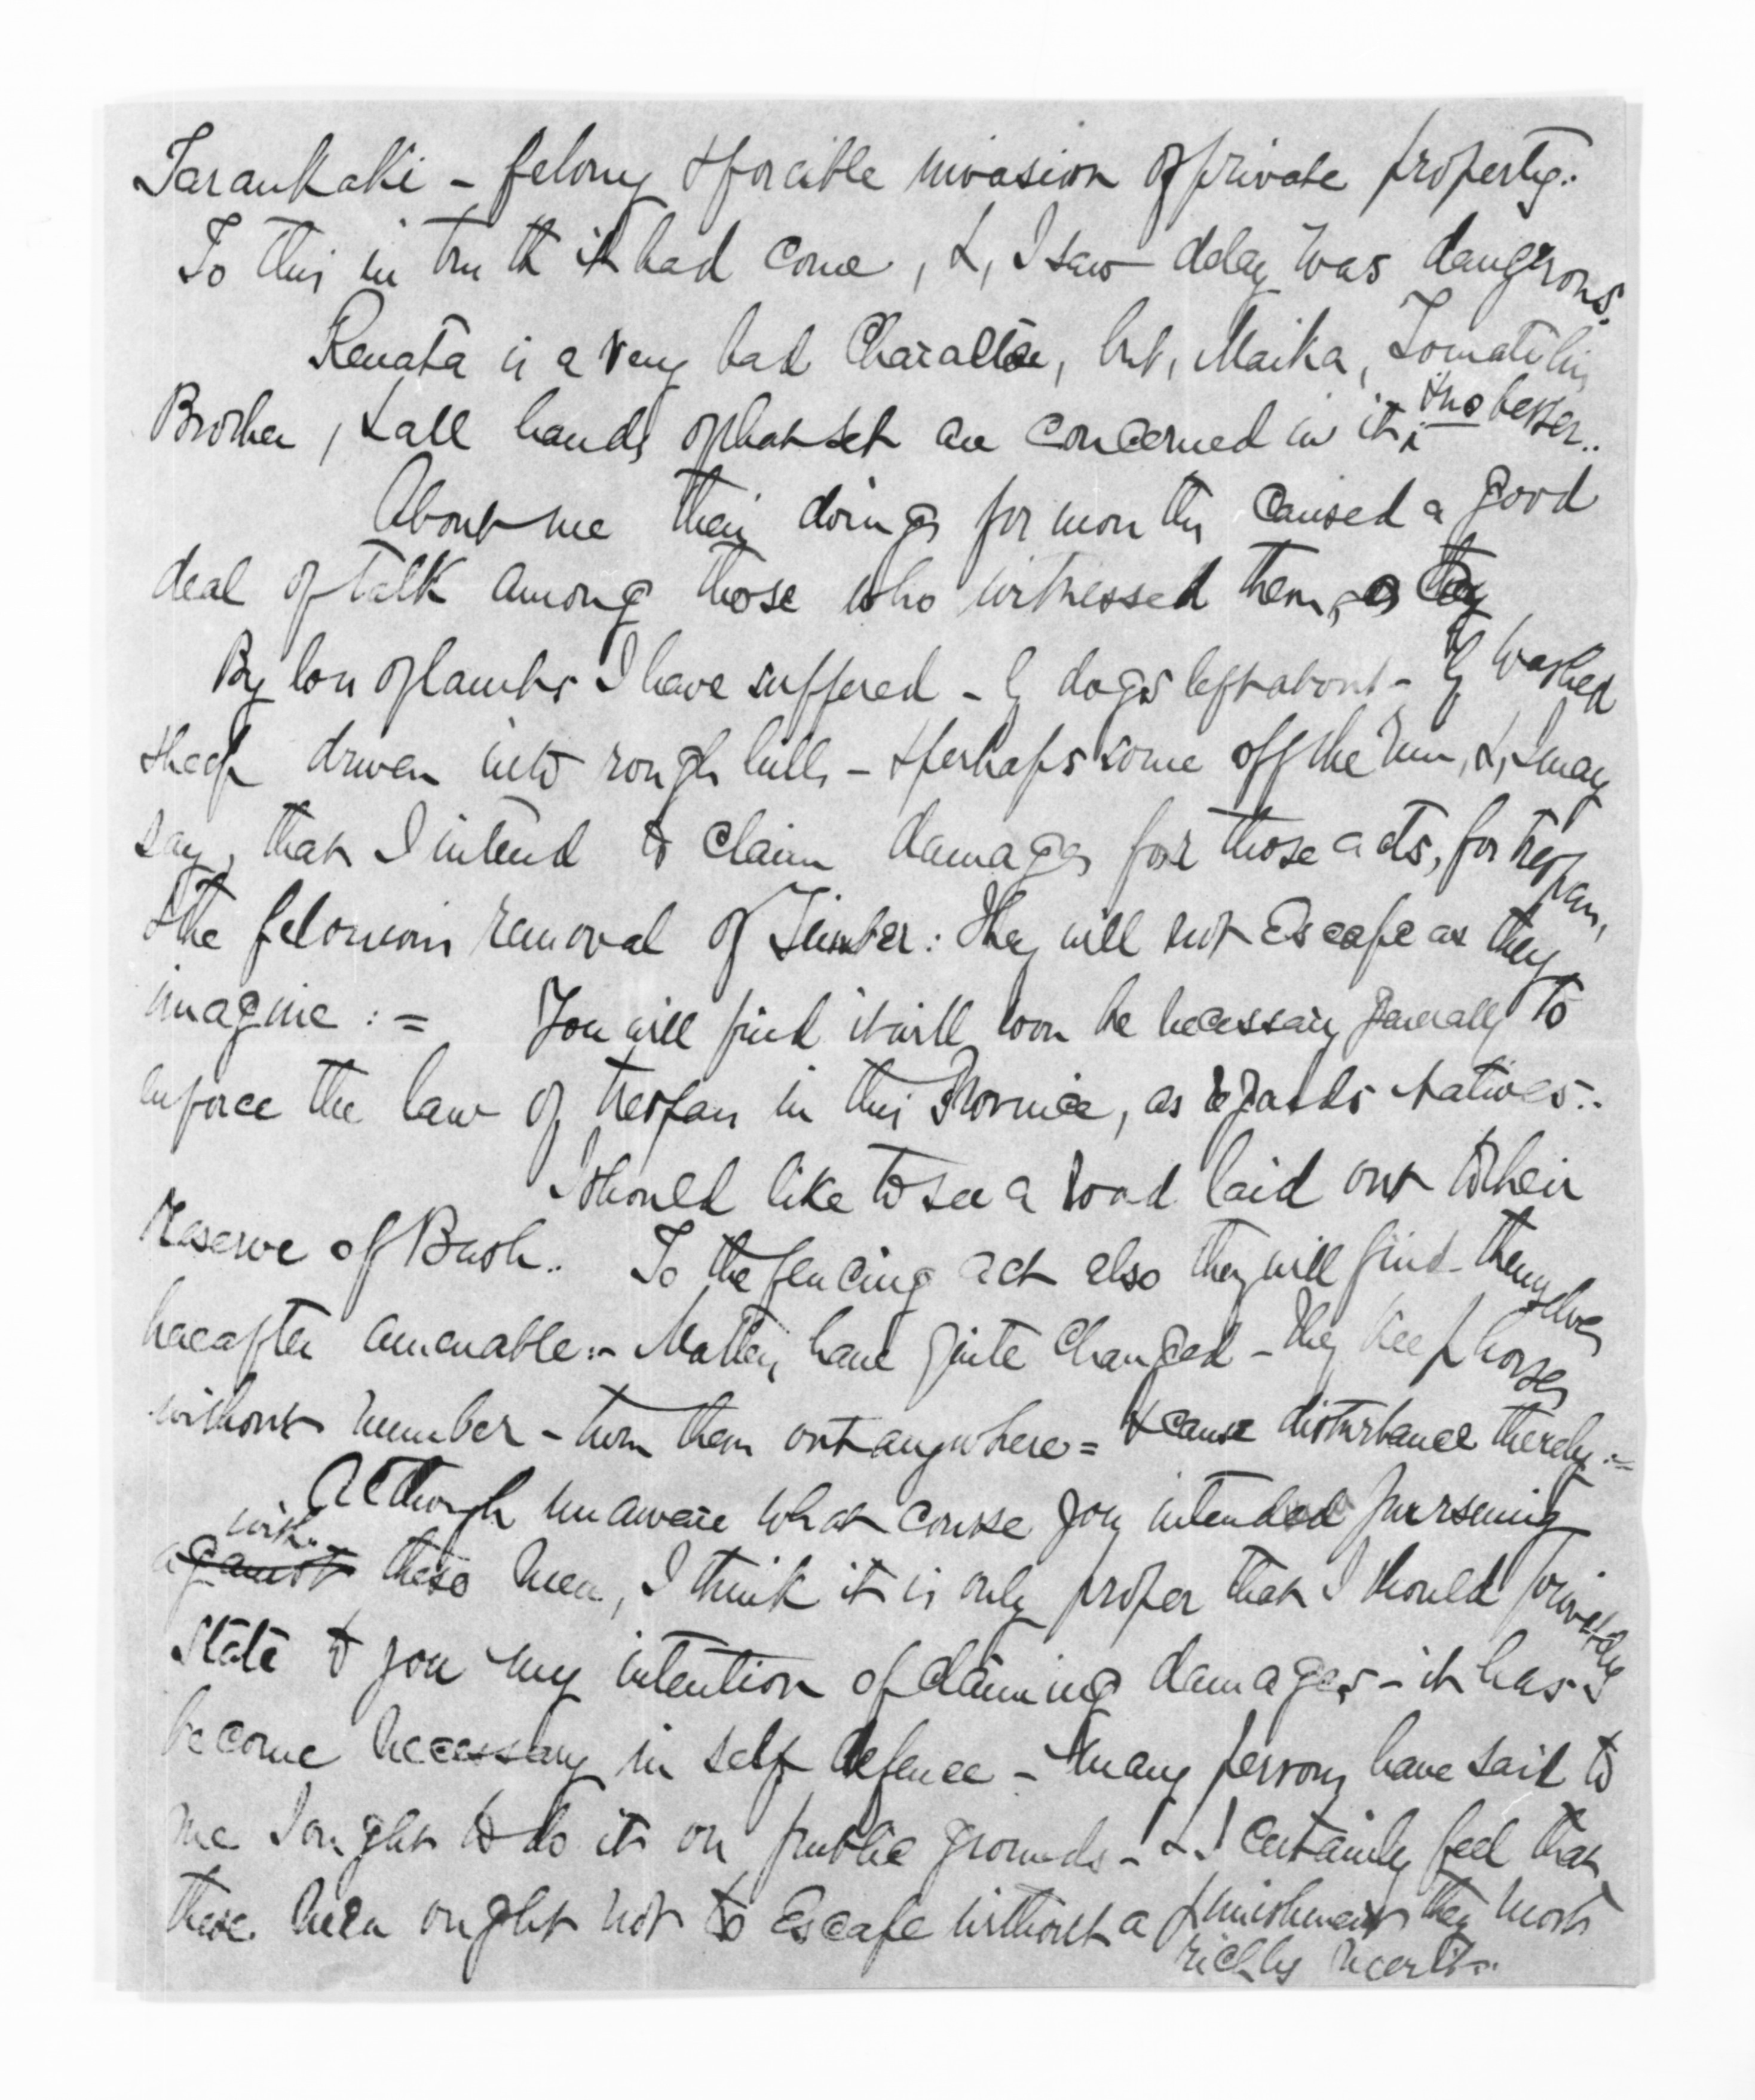 Tarankaki - felony & forcible invasion of private property.
To this in truth it had come, &, I saw delay was dangerous.
Renata is a very bad Character, but, Maika, Tomati his
Brother, & all hands of that set are concerned in it, & no better..
About me their doings for months caused a good
deal of talk among those who witnessed them,
By loss of lambs I have suffered - by dogs left about - by washed
sheep driven into rough hills - & perhaps some off the run, &, I may
say, that I intend to claim damages for those acts, for trespass,
& the felonious removal of Timber: They will not Escape as they
imagine : = You will find it will soon be necessary generally to
enforce the law of trespass in this Province, as regards Natives:.
I should like to see a road laid out to their
Reserve of Bush.. To the fencing act also they will find themselves
hereafter amenable:- Matters have quite changed - they keep horses
without number - turn them out anywhere = & cause disturbance thereby:=
Although unaware what course you intended pursuing
with
against these Men, I think it is only proper that I should privately
State to you my intention of claiming damages - it has
become necessary in self defence - Many persons have said to
me I ought to do it on public grounds - & I certainly feel that
these Men ought not to Escape without a punishment they most
richly merit..